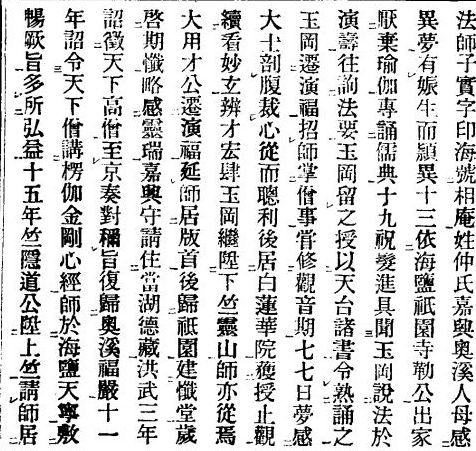 法師子實字印海號相庵姓仲氏嘉興奧溪人母感
異夢有娠生而頴異十三依海鹽祇園寺勒公出家
厭棄瑜伽專誦儒典十九祝髮進具聞玉岡說法於
演壽往詢法要玉岡留之授以天台諸書令熟誦之
玉岡遷演福招師掌僧事嘗修觀音期七七日夢感
大士剖腹裁心從而聰利後居白蓮華院獲授止觀
續看妙玄辨才宏肆玉岡繼陞下竺靈山師亦從焉
大用才公遷演福延師居版首後歸祇園建懺堂歲
啓期懺略感靈瑞嘉興守請住當湖德藏洪武三年
詔徵天下高僧至京奏對稱旨復歸奧溪福嚴十一
年詔令天下僧講楞伽金剛心經師於海鹽天寧敷
暢厥旨多所弘益十五年竺隱道公陞上竺請師居